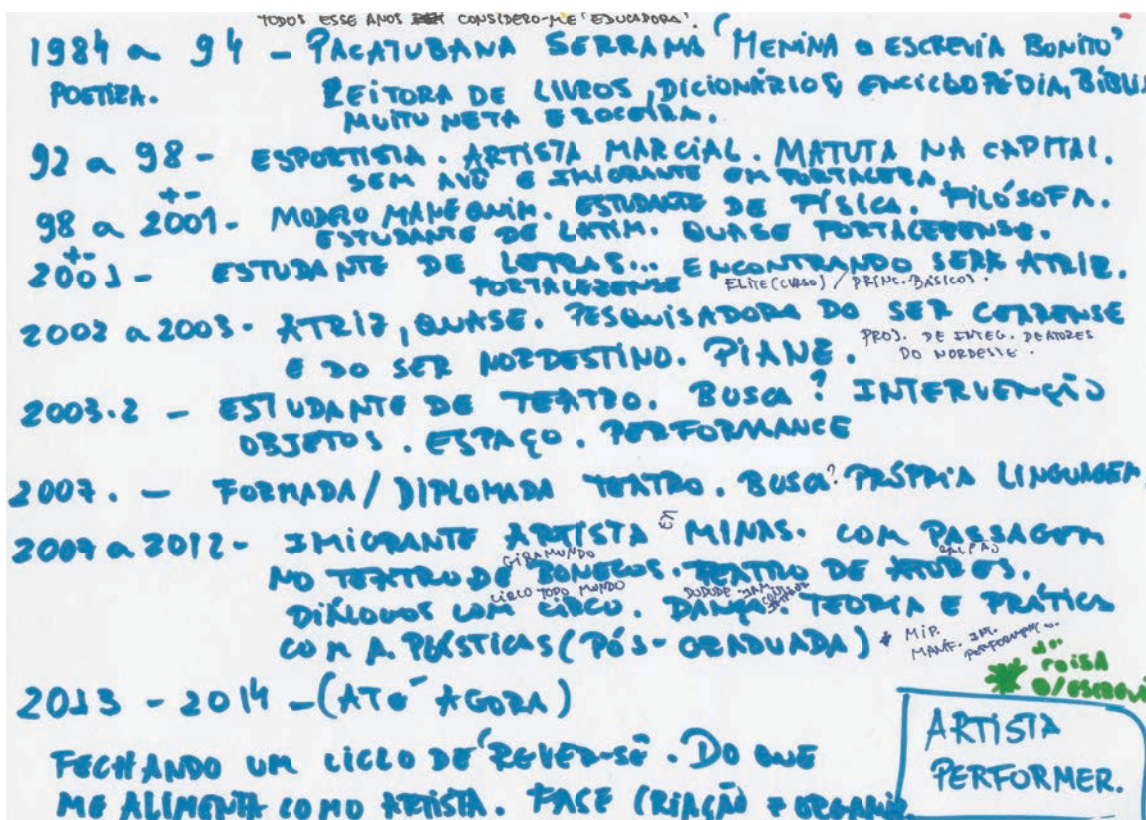 TODOS ESSE ANOS CONSIDERO-ME 'EDUCADORA'.
1984 a 94 - PACATUBANA SERRANA "MENINA Q ESCREVIA BONITO"
POETIZA. LEITORA DE LIVROS, DICIONÁRIOS, ENCICLOPÉDIA, BÍBLIA
MUITO NETA E ROCEIRA.
92 a 98 - ESPORTISTA. ARTISTA MARCIAL. MATUTA NA CAPITAL.
SEM AVÓ E IMIGRANTE EM FORTALEZA
98 a 2001 +- - MODELO MANEQUIM. ESTUDANTE DE FÍSICA. FILÓSOFA.
ESTUDANTE DE LATIM. QUASE FORTALEZENSE.
+- 2001 - ESTUDANTE DE LETRAS... ENCONTRANDO SERR ATRIZ.
FORTALEZENSE ELITE (CURSO) / PRINC. BÁSICOS.
2002 a 2003 - ATRIZ, QUASE. PESQUISADORA DO SER CEARENSE
E DO SER NORDESTINO. PIANE. PROJ. DE INTEG. DE ATORES
DO NORDESTE.
2003.2 - ESTUDANTE DE TEATRO. BUSCA? INTERVENÇÃO
OBJETOS. ESPAÇO. PERFORMANCE
2007. - FORMADA / DIPLOMADA TEATRO. BUSCA? PRÓPRIA LINGUAGEM
2007 a 2012 - IMIGRANTE ARTISTA EM MINAS. COM PASSAGEM
GIRAMUNDO GALPÃO
NO TEATRO DE BONECOS. TEATRO DE ATORES.
CIRCO TODO MUNDO DUDUDE
DIÁLOGOS COM CIRCO. DANÇA. TEORIA E PRÁTICA
COM A. PLÁSTICAS (PÓS-GRADUADA) * MIP.
MANF. INT.
PERFORMANCE.
1ª COISA
Q/ESCREVI
2013 - 2014 - (ATÉ AGORA)
ARTISTA
PERFORMER.
FECHANDO UM CICLO DE "REVER-SE". DO QUE
ME ALIMENTA COMO ARTISTA. FASE CRIAÇÃO